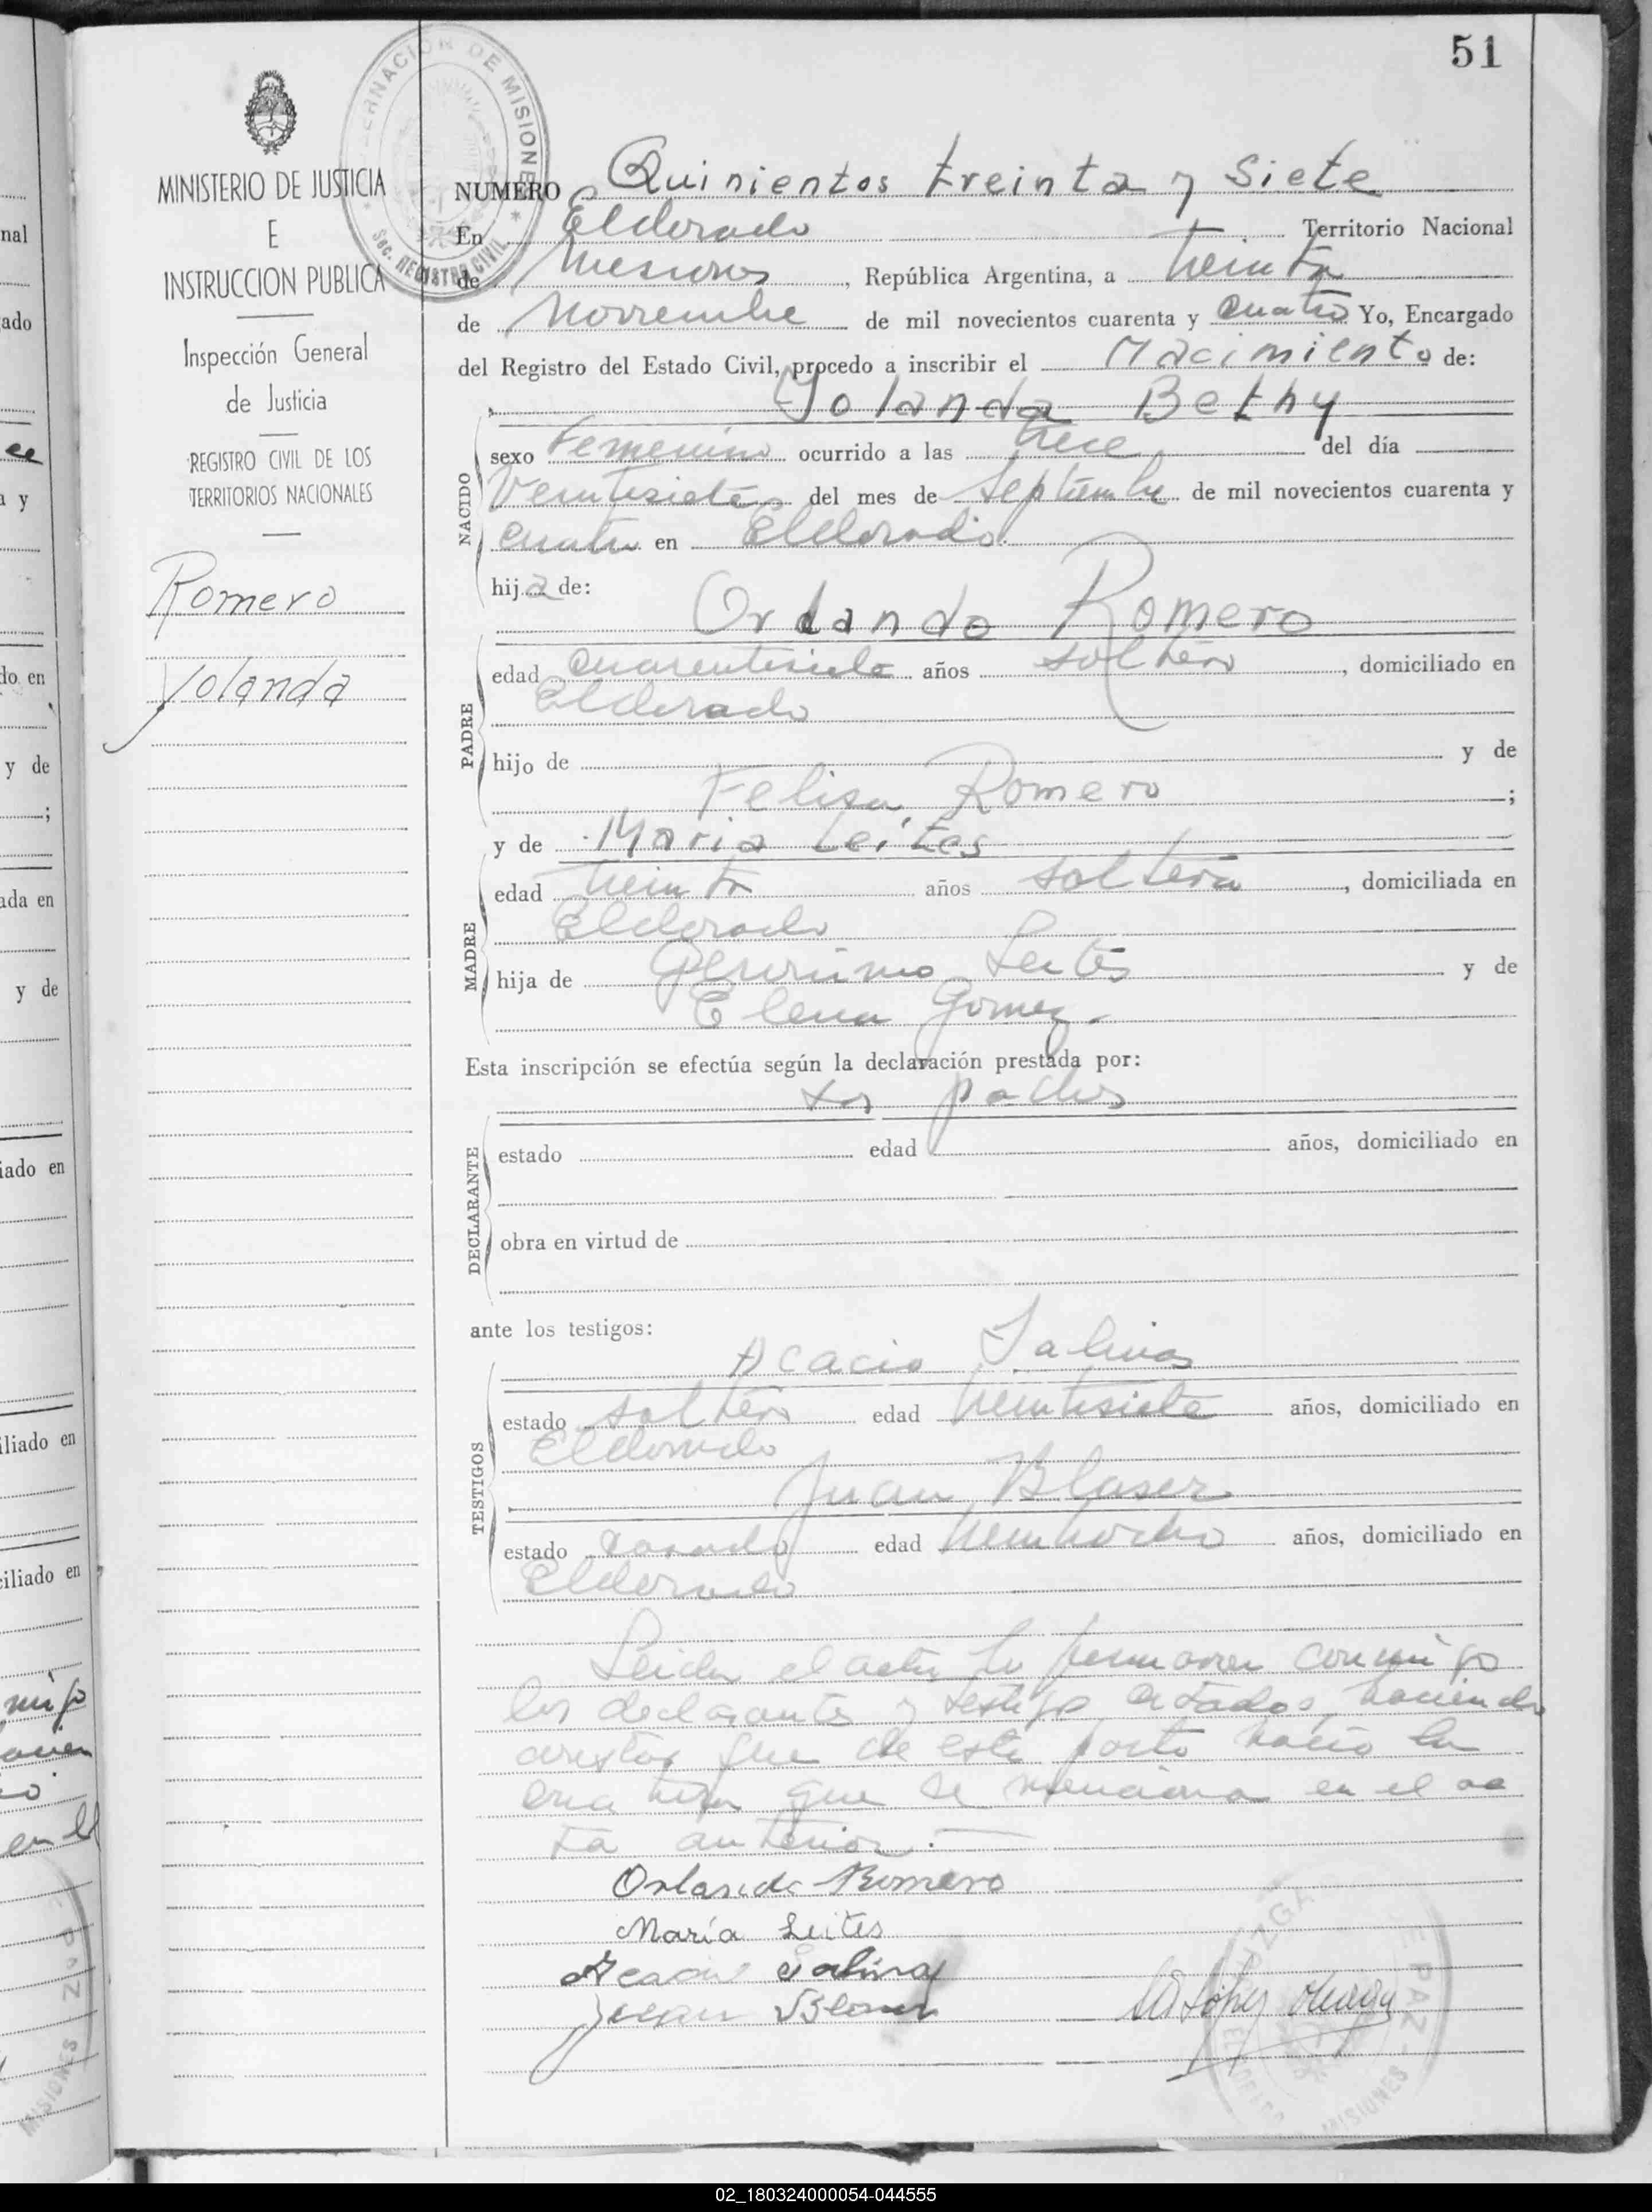 51
GOBERNACION DE MISIONES
Sec. REGISTRO CIVIL
MINISTERIO DE JUSTICIA
E
INSTRUCCION PUBLICA
Inspección General
de Justicia
REGISTRO CIVIL DE LOS
TERRITORIOS NACIONALES
Romero
Yolanda
NUMERO Quinientos treinta y siete
En Eldorado Territorio Nacional
de Misiones, República Argentina, a treinta
de Noviembre de mil novecientos cuarenta y cuatro Yo, Encargado
del Registro del Estado Civil, procedo a inscribir el Nacimiento de:
Yolanda Bethy
NACIDO
sexo Femenino ocurrido a las trece del día
Veintisiete del mes de Septiembre de mil novecientos cuarenta y
cuatro en Eldorado
hija de:
Orlando Romero
PADRE
edad cuarentisiete años soltero, domiciliado en
Eldorado
hijo de y de
Felisa Romero;
y de Maria Leites
MADRE
edad treinta años soltera, domiciliada en
Eldorado
hija de Gerónimo Leites y de
Elena Gomez.
Esta inscripción se efectúa según la declaración prestada por:
los padres
DECLARANTE
estado edad años, domiciliado en
obra en virtud de
ante los testigos:
Acacio Salinas
TESTIGOS
estado soltero edad años, domiciliado en
Eldorado
Juan Blaser
estado casado edad años, domiciliado en
Eldorado
Leida el acta la conmigo
los declarantes y testigos citados, haciendo
que de este parto nació la
que se menciona en el ac
ta anterior.
Orlando Romero
María Leites
Acacio Salinas
Juan Blaser
DE PAZ
MISIONES
nal
ado
ee
a y
do en
y de
;
ada en
y de
iado en
iliado en
ciliado en
migo
en el
PAZ
MISIONES
02_180324000054-044555